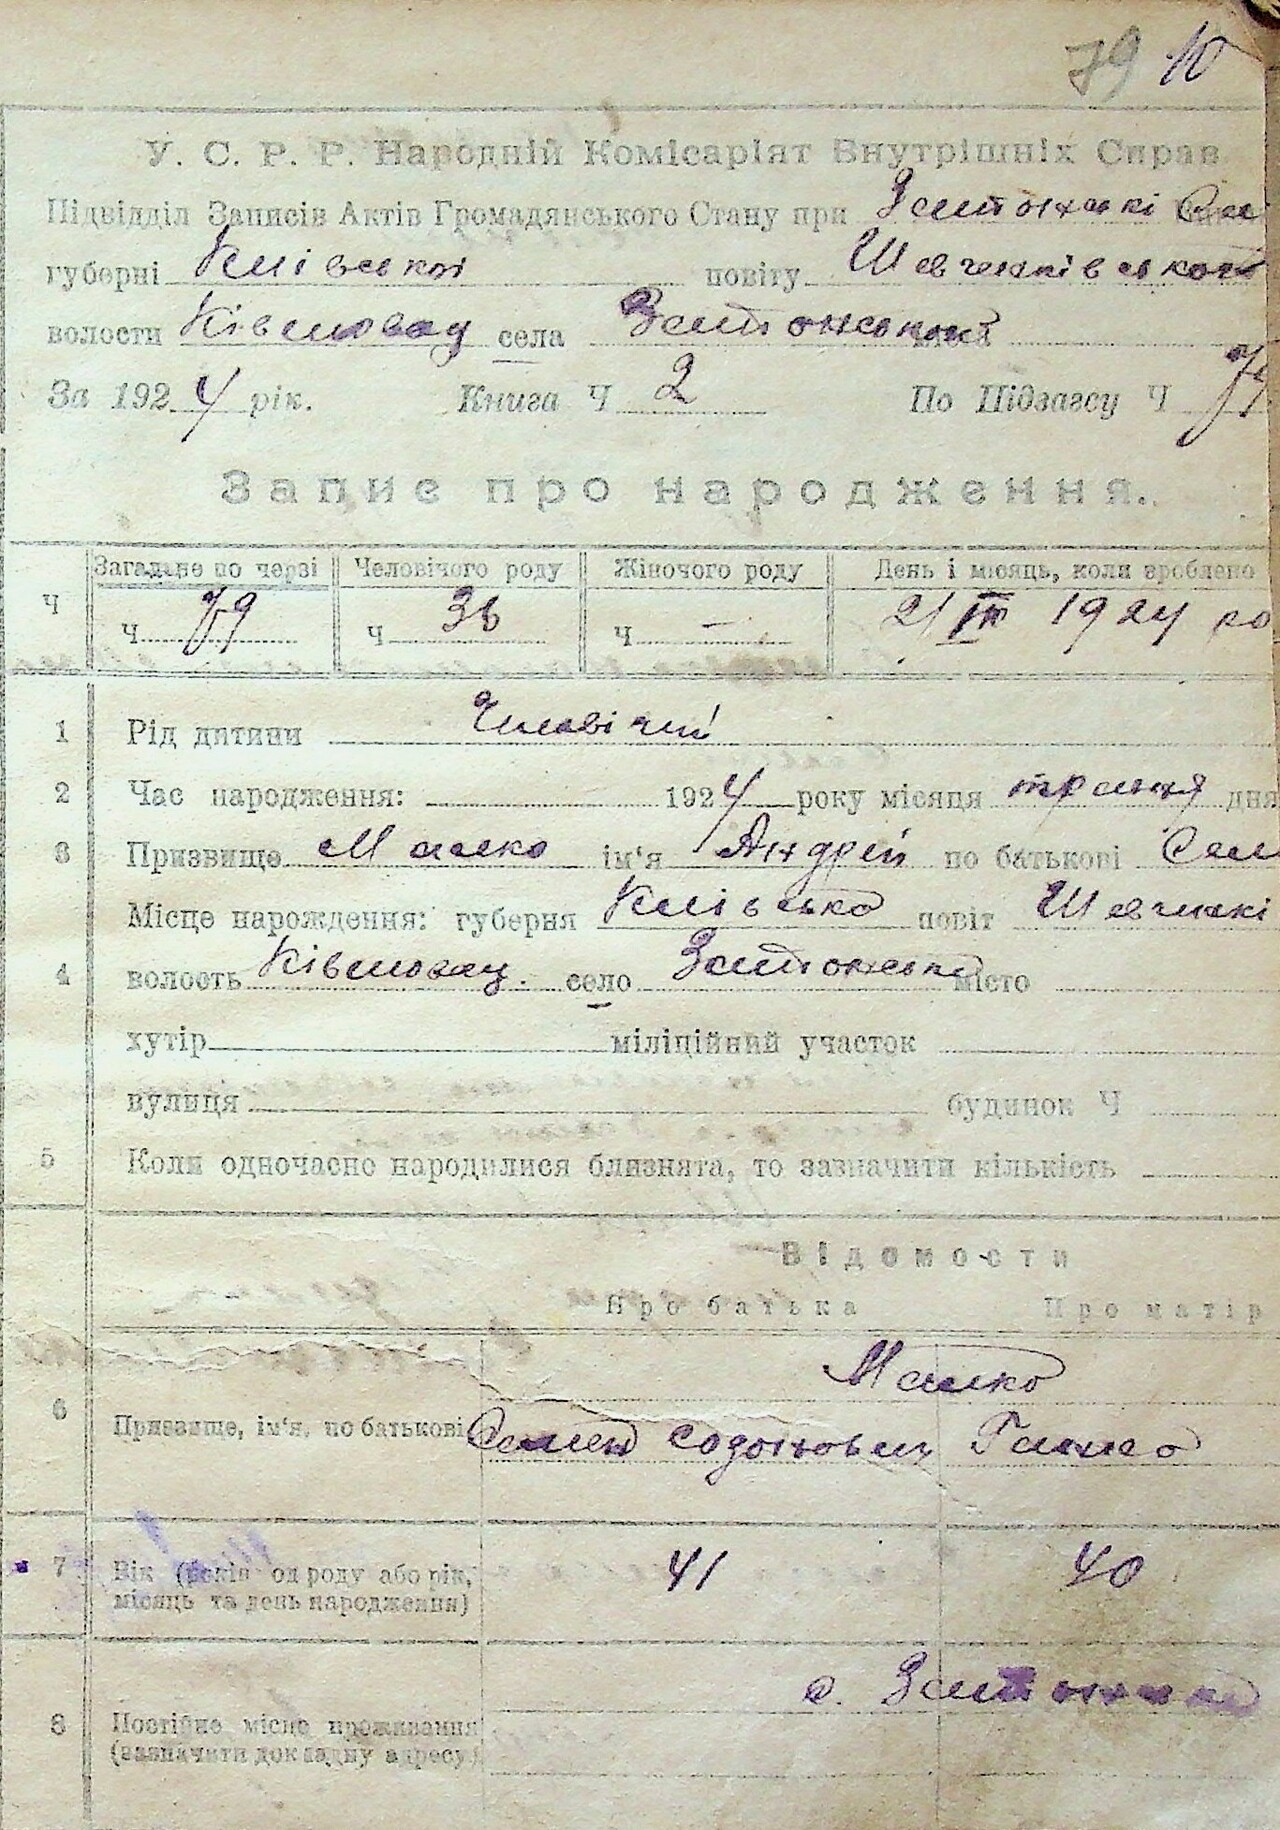 79 10
У. С. Р. Р. Народній Комісаріят Внутрішніх Справ
Підвідділ Записів Актів Громадянського Стану при
губерні Київської повіту Шевченківського
волости села
За 1924 рік. Книга Ч 2 По Підзагсу Ч 79
Запис про народження.
Загадане по черзі Человічого роду Жіночого роду День і місяць, коли зроблено
Ч Ч 79 Ч 38 Ч - 21 1924 ро
1 Рід дитини Чиловічий
2 Час народження: 1924 року місяця дня
3 Призвище Малко ім'я Андрей по батькові Сем
Місце народження: губерня Київсько повіт Шевченкі
4 волость село місто
хутір міліційний участок
вулиця будинок Ч
5 Коли одночасно народилися близнята, то зазначити кількість
Відомости
Про батька Про матір
Малко
6 Призвище, ім'я, по батькові Семен Ганна
7 Вік (років од роду або рік, 41 40
місяць та день народження)
с.
8 Постійне місце проживання
(зазначити докладну адресу)